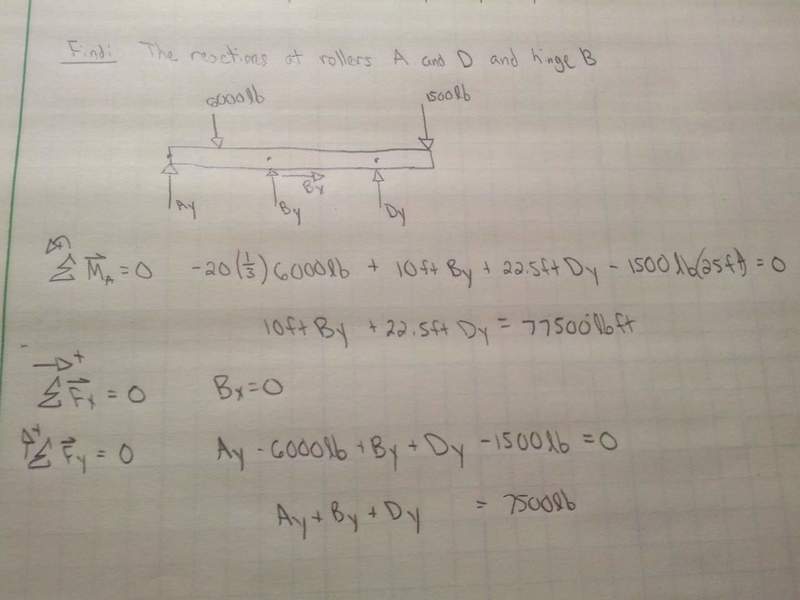 Find: The reactions at rollers A and D and hinge B
6000lb 1500lb
By
Ay By Dy
Σ M⃗A = 0 -20(1/3)6000lb + 10ft By + 22.5ft Dy - 1500lb(25ft) = 0
10ft By + 22.5ft Dy = 77500lbft
→+
Σ F⃗x = 0 Bx = 0
↑+ Σ F⃗y = 0 Ay - 6000lb + By + Dy - 1500lb = 0
Ay + By + Dy = 7500lb